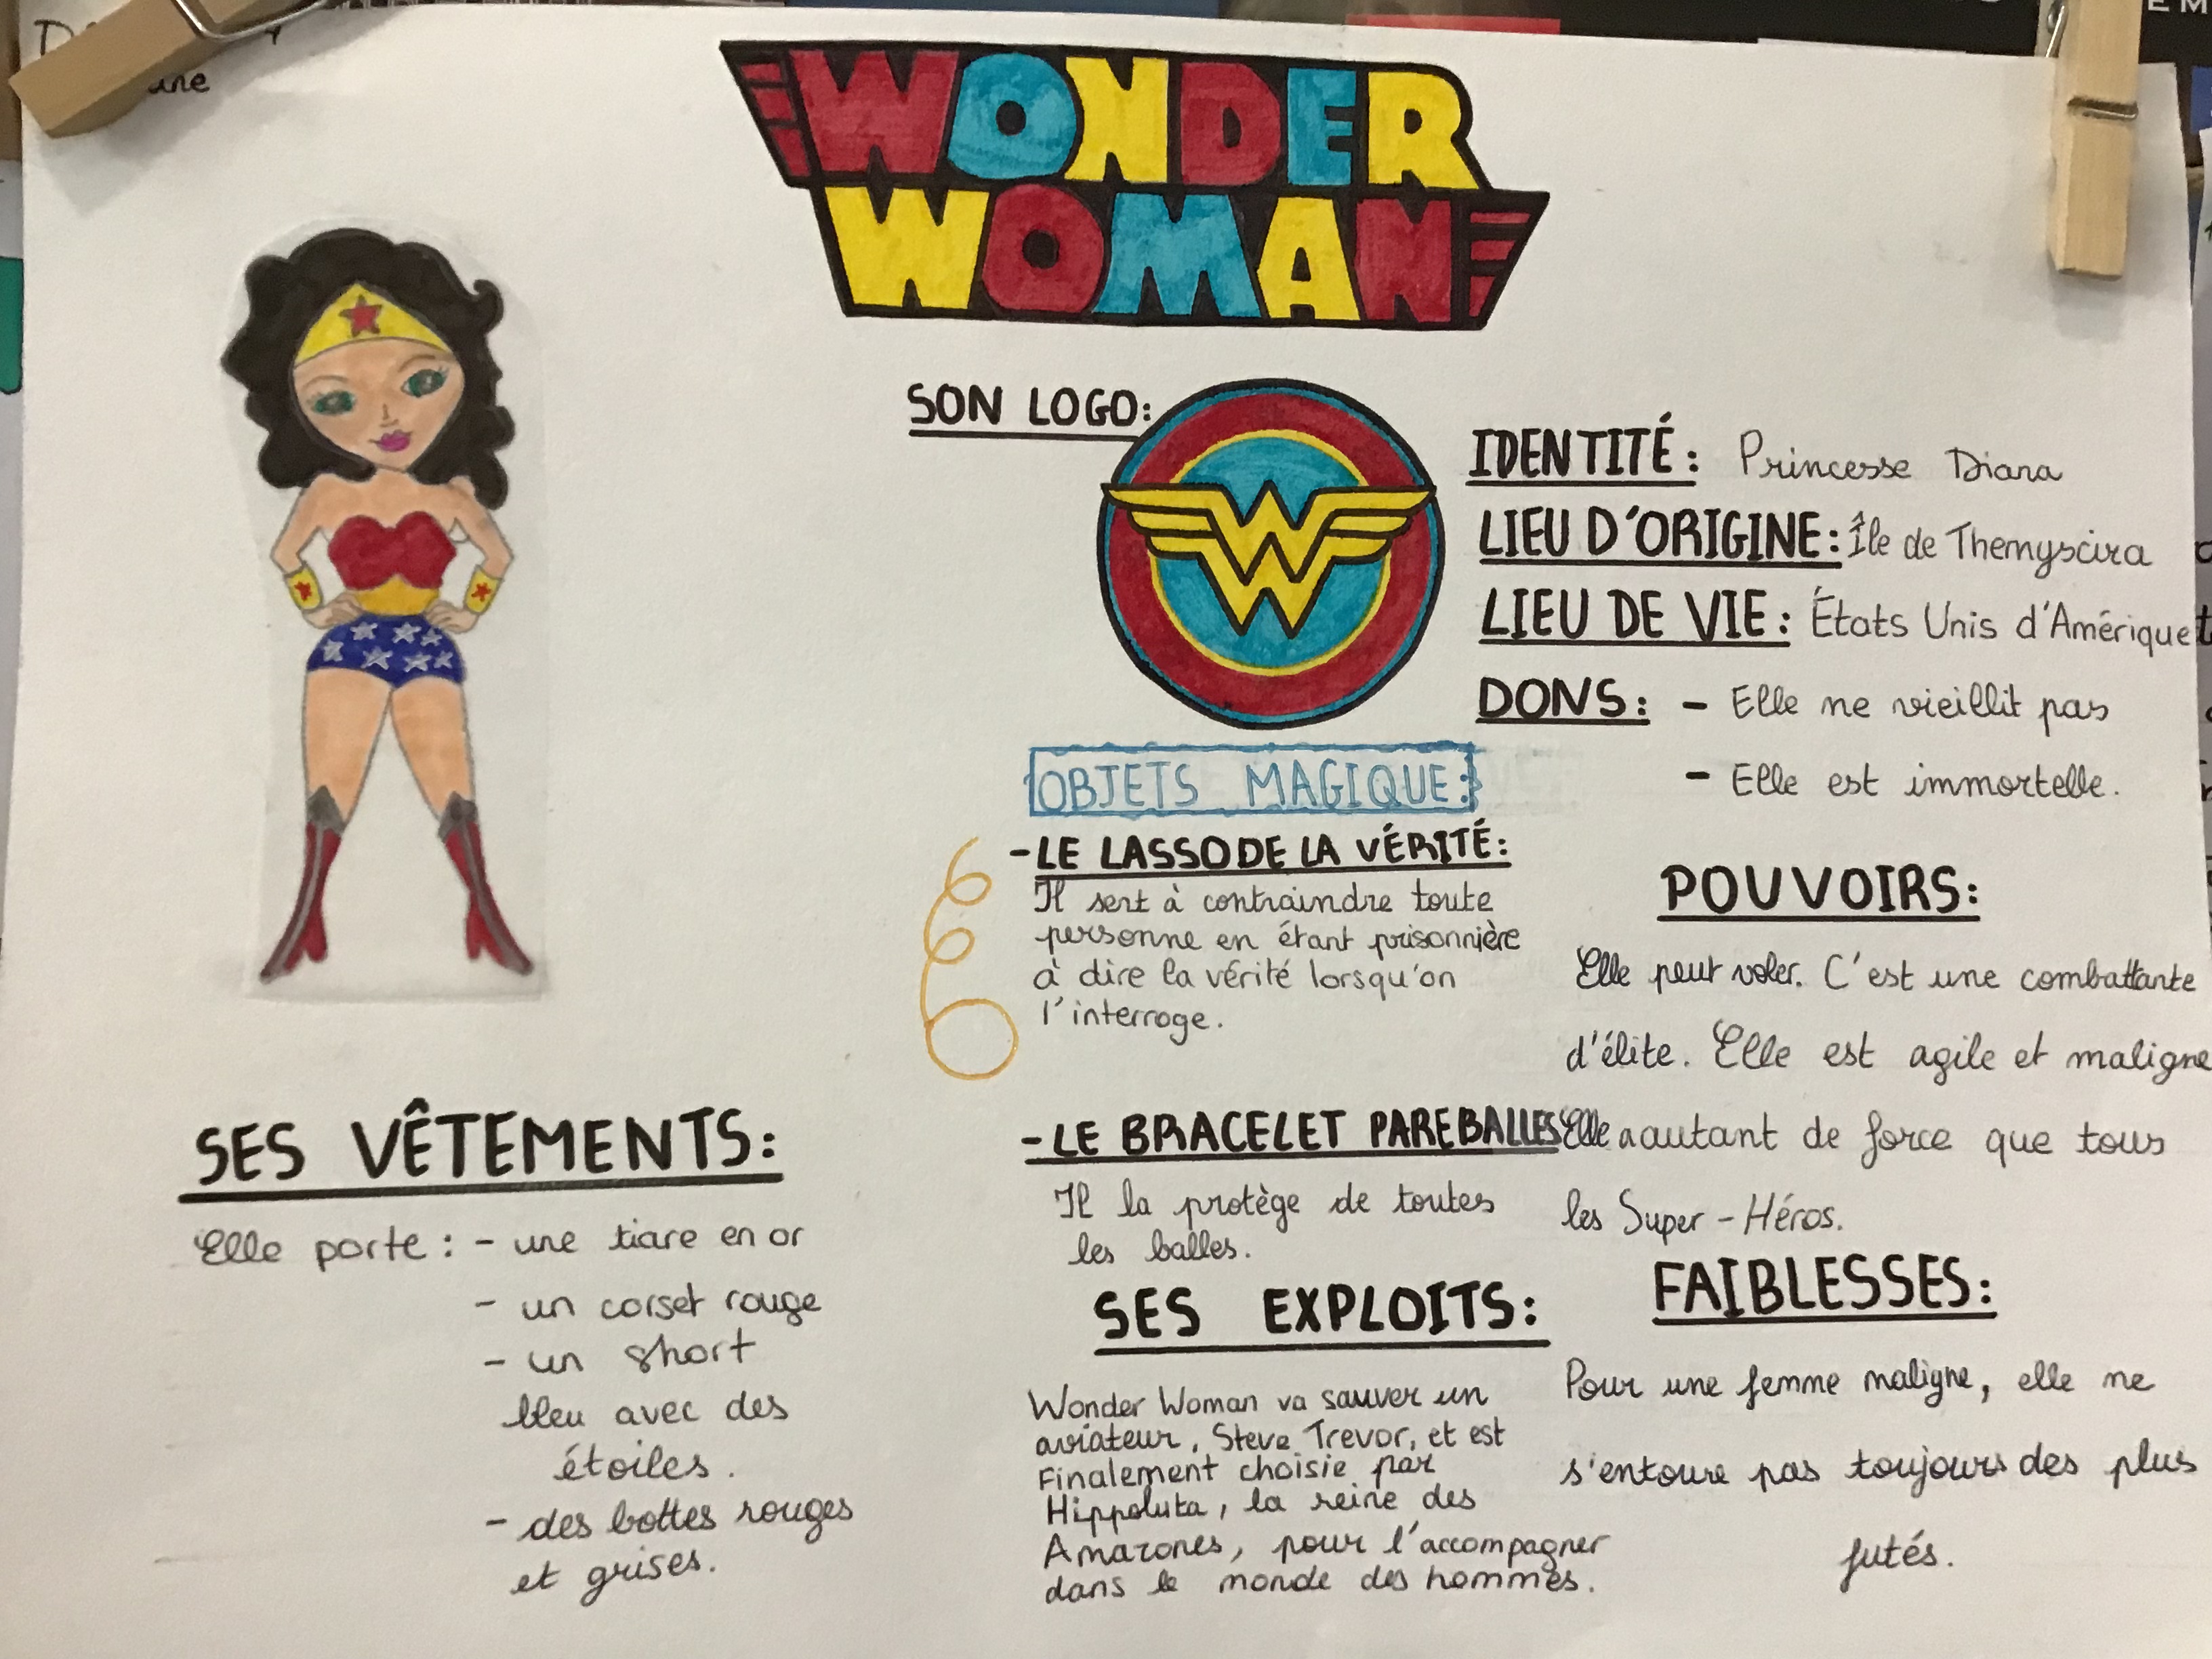 WONDER
WOMAN
SON LOGO:
IDENTITÉ: Princesse Diana
LIEU D'ORIGINE: Île de Themyscira
LIEU DE VIE: États Unis d'Amérique
DONS: - Elle ne vieillit pas
- Elle est immortelle.
OBJETS MAGIQUE:
- LE LASSO DE LA VÉRITÉ:
Il sert à contraindre toute
personne en étant prisonnière
à dire la vérité lorsqu'on
l'interroge.
- LE BRACELET PAREBALLES
Il la protège de toutes
les balles.
POUVOIRS:
Elle peut voler. C'est une combattante
d'élite. Elle est agile et maligne
Elle a autant de force que tous
les Super-Héros.
SES VÊTEMENTS:
Elle porte: - une tiare en or
- un corset rouge
- un short
bleu avec des
étoiles.
- des bottes rouges
et grises.
SES EXPLOITS:
Wonder Woman va sauver un
aviateur, Steve Trevor, et est
Finalement choisie par
Hippoluta, la reine des
Amazones, pour l'accompagner
dans le monde des hommes.
FAIBLESSES:
Pour une femme maligne, elle ne
s'entoure pas toujours des plus
futés.